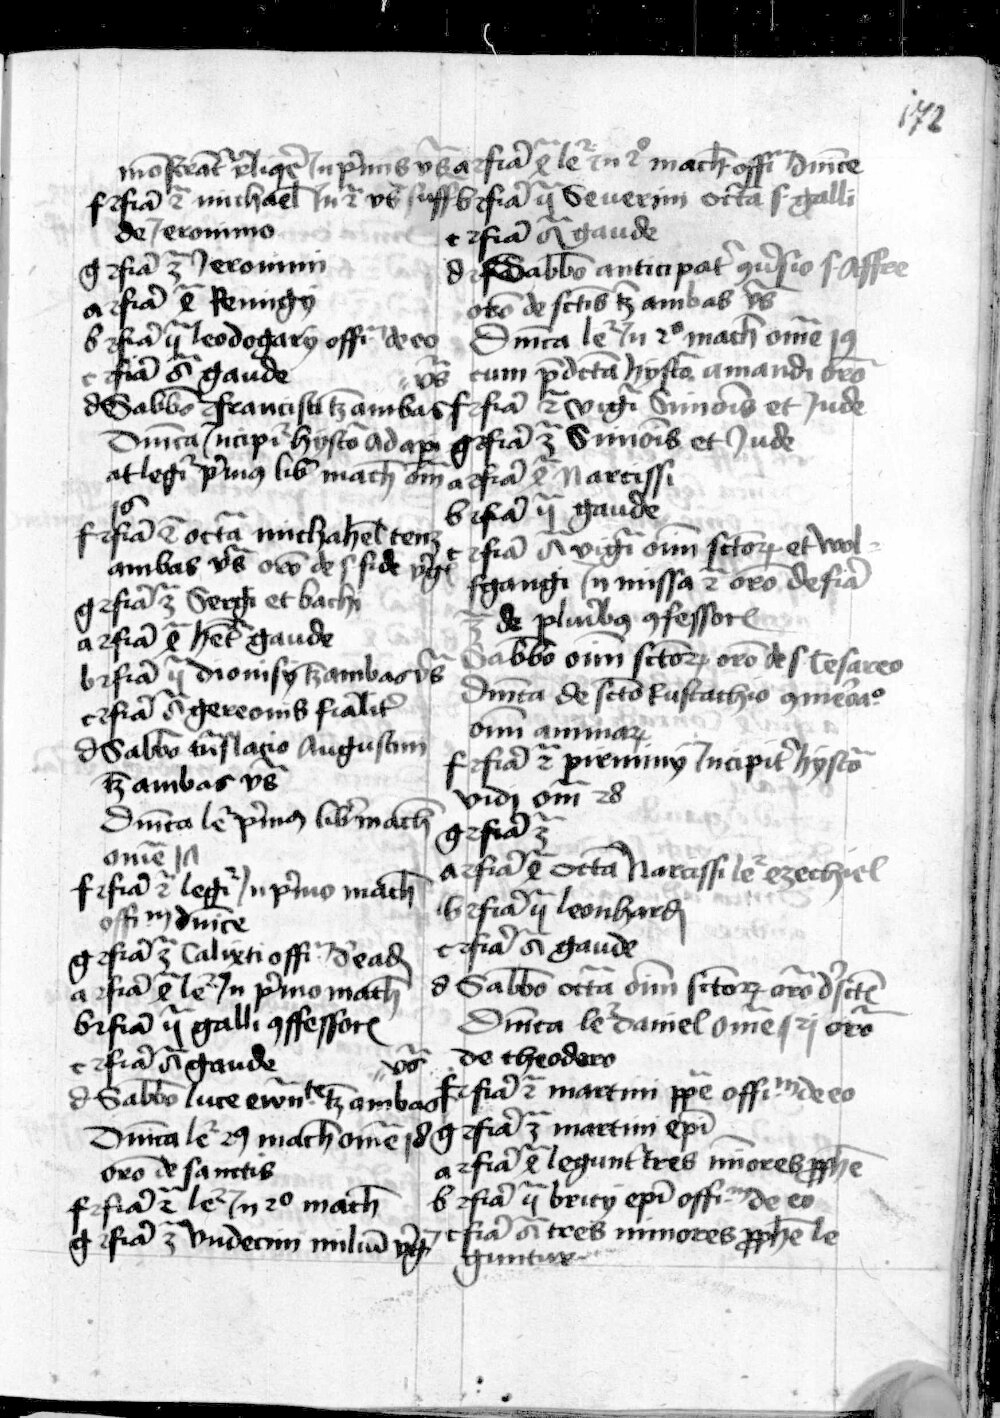 172
monstrant reliqe In primis vs
f rfia 2 michael In 2 vs suff
de Jeronimo
g rfia 3 Jeronimi
a rfia 4 Remigy
b rfia 5 leodogary offi de eo
c rfia 6 gaude vs
d Sabbo francisci tz ambas
Dmca Incipi hysto Adaperi
at legi primus lib mach om
16
f rfia 2 octa michahel tenz
ambas vs oro de s fide virg
g rfia 3 Sergi et bachi
a rfia 4 het gaude
b rfia 5 dionisy tz ambas vs
c rfia 6 gereonis frialit
d Sabbo tnslacio Augustini
tz ambas vs
Dmca le primus libr mach
omie 17
f rfia 2 legi In primo mach
offim dnice
g rfia 3 Calixti offi de ead
a rfia 4 le In primo mach
b rfia 5 galli 9fessor
c rfia 6 gaude vs
d Sabbo luce ewn te tz ambas
Dmca le 29 mach omie 18
oro de sanctis
f rfia 2 le In 2o mach
g rfia 3 Vndecim miliu virg
a rfia 4 le In 2o mach offim dnice
b rfia 5 Severini octa s galli
c rfia 6 gaude
d Sabbo anticipat 9usio s Affre
oro de sctis tz ambas vs
Dmca le In 2o mach omie 19
cum pdcta hysto amandi oro
f rfia 2 vigi Simois et Jude
g rfia 3 Simois et Jude
a rfia 4 Narcissi
b rfia 5 gaude
c rfia 6 vigi oim sctor et wol=
fgangi In missa 2 oro de fia
3 de pluribus 9fessor
Sabbo oim sctor oro de s Cesareo
Dmca de scto Eustachio 9meoao
oim animar
f rfia 2 pirminy Incipit hysto
vidi omi 28
g rfia 3
a rfia 4 octa Narcissi le ezechiel
b rfia 5 leonhardi
c rfia 6 gaude
d Sabbo octa oim sctor oro d sct
Dmca le daniel omie oro
de theodoro
f rfia 2 martini ppe offim de eo
g rfia 3 martini epi
a rfia 4 legunt tres miores pphe
b rfia 5 bricy epi offim de eo
c rfia 6 tres minores pphe le
guntur